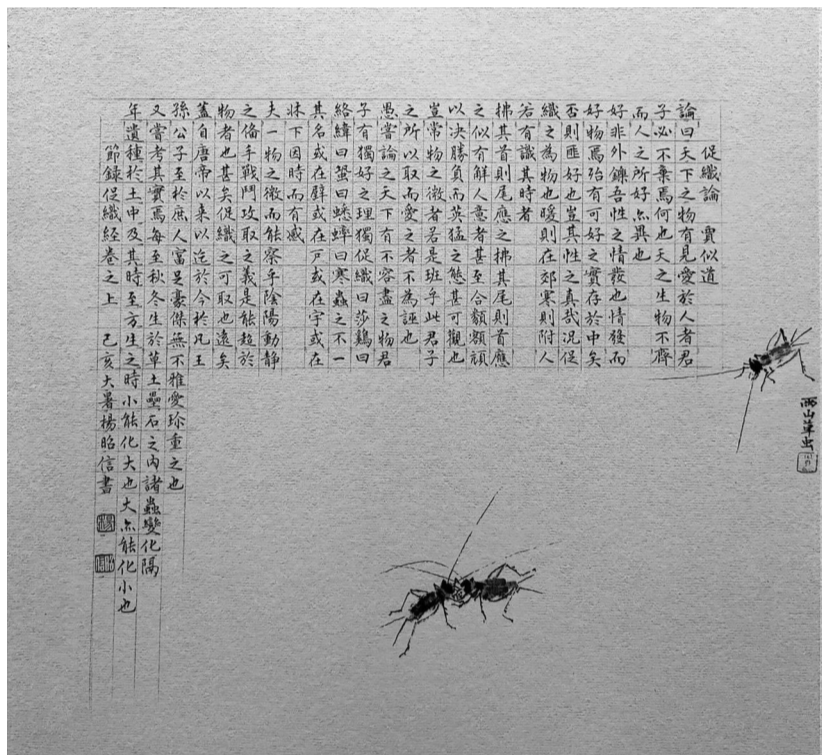 促織論 賈似道
論曰天下之物有見愛於人者君
子必不棄焉何也天之生物不齊
而人之所好亦異也
好非外鑠吾性之情發也情發而
好物焉殆有可好之實存於中矣
否則匪好也豈其性之真哉況促
織之為物也暖則在郊寒則附人
若有識其時者
拂其首則尾應之拂其尾則首應
之似有解人意者甚至合頷額頏
以決勝負而英猛之態甚可觀也
豈常物之微者若是班乎此君子
之所以取而愛之者不為誣也
愚嘗論之天下有不容盡之物君
子有獨好之理獨促織曰莎鷄曰
絡緯曰蛩曰蟋蟀曰寒蟲之不一
其名或在壁或在戶或在宇或在
牀下因時而有感
夫一物之微而能察乎陰陽動靜
之備乎戰鬥攻取之義是能超於
物者也甚矣促織之可取也遠矣
蓋自唐帝以來以迄於今於凡王
孫公子至於庶人富足豪傑無不雅愛珍重之也
又嘗考其實焉每至秋冬生於草土壘石之內諸蟲變化隔
年遺種於土中及其時至方生之時小能化大也大亦能化小也
節錄促織經卷之上 己亥大暑楊昭信書
西山草虫